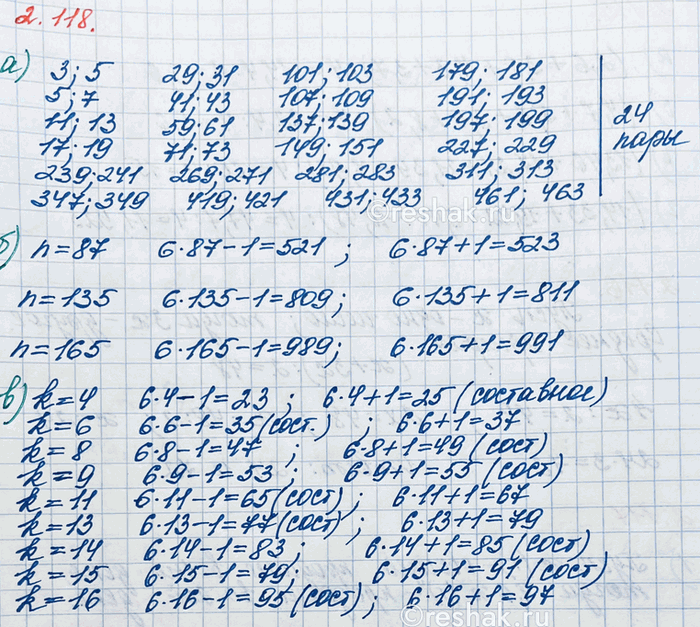 2.118.
а) 3; 5 29; 31 101; 103 179; 181
5; 7 41; 43 107; 109 191; 193
11; 13 59; 61 137; 139 197; 199
17; 19 71; 73 149; 151 227; 229
239; 241 269; 271 281; 283 311; 313
347; 349 419; 421 431; 433 461; 463
24 пары
©reshak.ru
б) n=87 6·87-1=521; 6·87+1=523
n=135 6·135-1=809; 6·135+1=811
n=165 6·165-1=989; 6·165+1=991
в) k=4 6·4-1=23; 6·4+1=25 (составное)
k=6 6·6-1=35(сост.); 6·6+1=37
k=8 6·8-1=47; 6·8+1=49 (сост)
k=9 6·9-1=53; 6·9+1=55 (сост)
k=11 6·11-1=65(сост); 6·11+1=67
k=13 6·13-1=77(сост); 6·13+1=79
k=14 6·14-1=83; 6·14+1=85(сост)
k=15 6·15-1=79; 6·15+1=91 (сост)
k=16 6·16-1=95(сост); 6·16+1=97
©reshak.ru